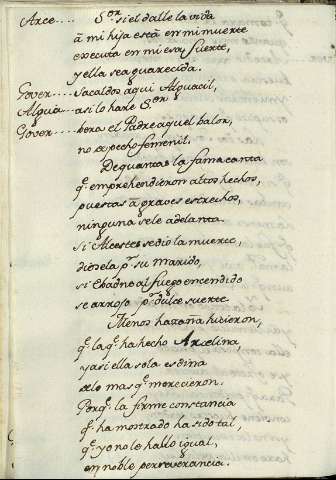 Arce.... Sor. si el dalle la vida
â mi hija està en mi muerte
executa en mi esa suerte,
y ella sea guarecida.
Gover.... Sacaldos aqui Alguacil,
Algua.... asi lo hare Sor
Gover.... pero el Padre aquel valor,
no es pecho femenil.
De quantas la fama canta
q.e emprehendieron altos hechos,
puestas â graves estrechos,
ninguna se le adelanta.
Si Alceste se diò la muerte,
diosela pr. su marido,
si Ebadne al fuego encendido
se arrojo pr. dulce suerte
Menos hazaña hicieron,
q.e la q.e ha hecho Arcelina
y asi ella sola es dina
de lo mas q.e merecieron.
Porq.e la firme constancia
q.e ha mostrado ha sido tal,
q.e yo no le hallo igual,
en noble perseverancia.